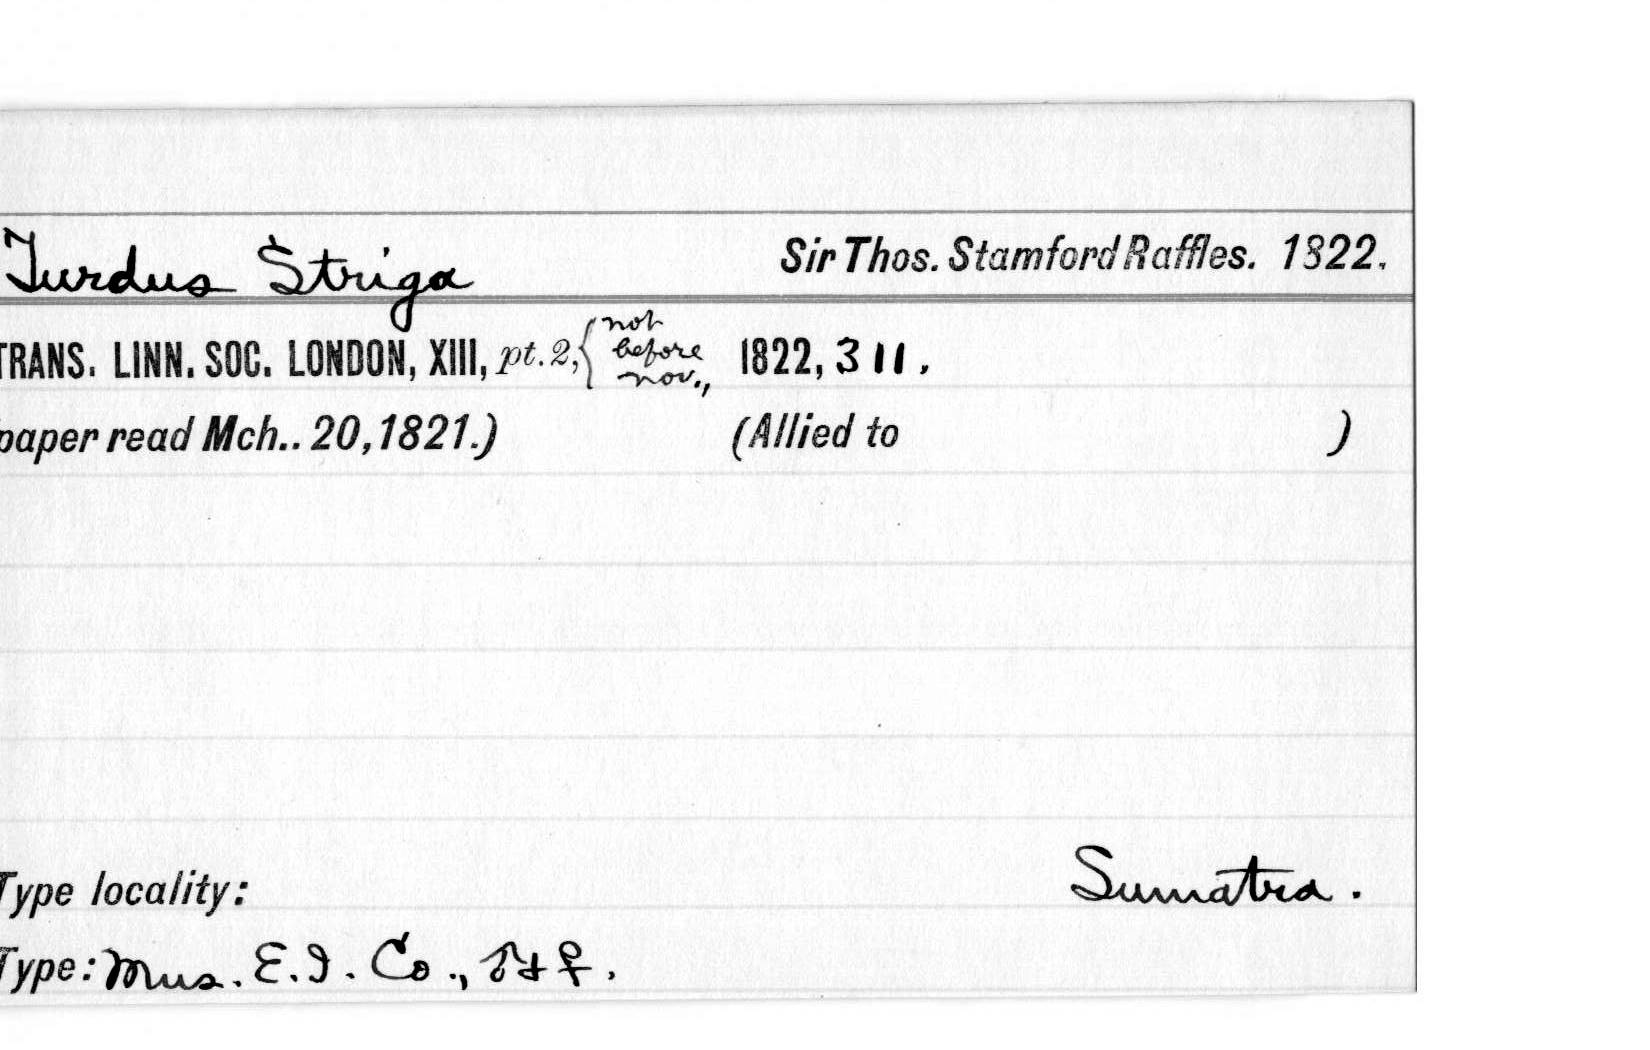 Turdus Striga Sir Thos. Stamford Raffles. 1822.
TRANS. LINN. SOC. LONDON, XIII, pt. 2, { not before nov., 1822, 311.
paper read Mch.. 20, 1821.) (Allied to )
Type locality: Sumatra.
Type: Mus. E.I. Co., ♂ + ♀.